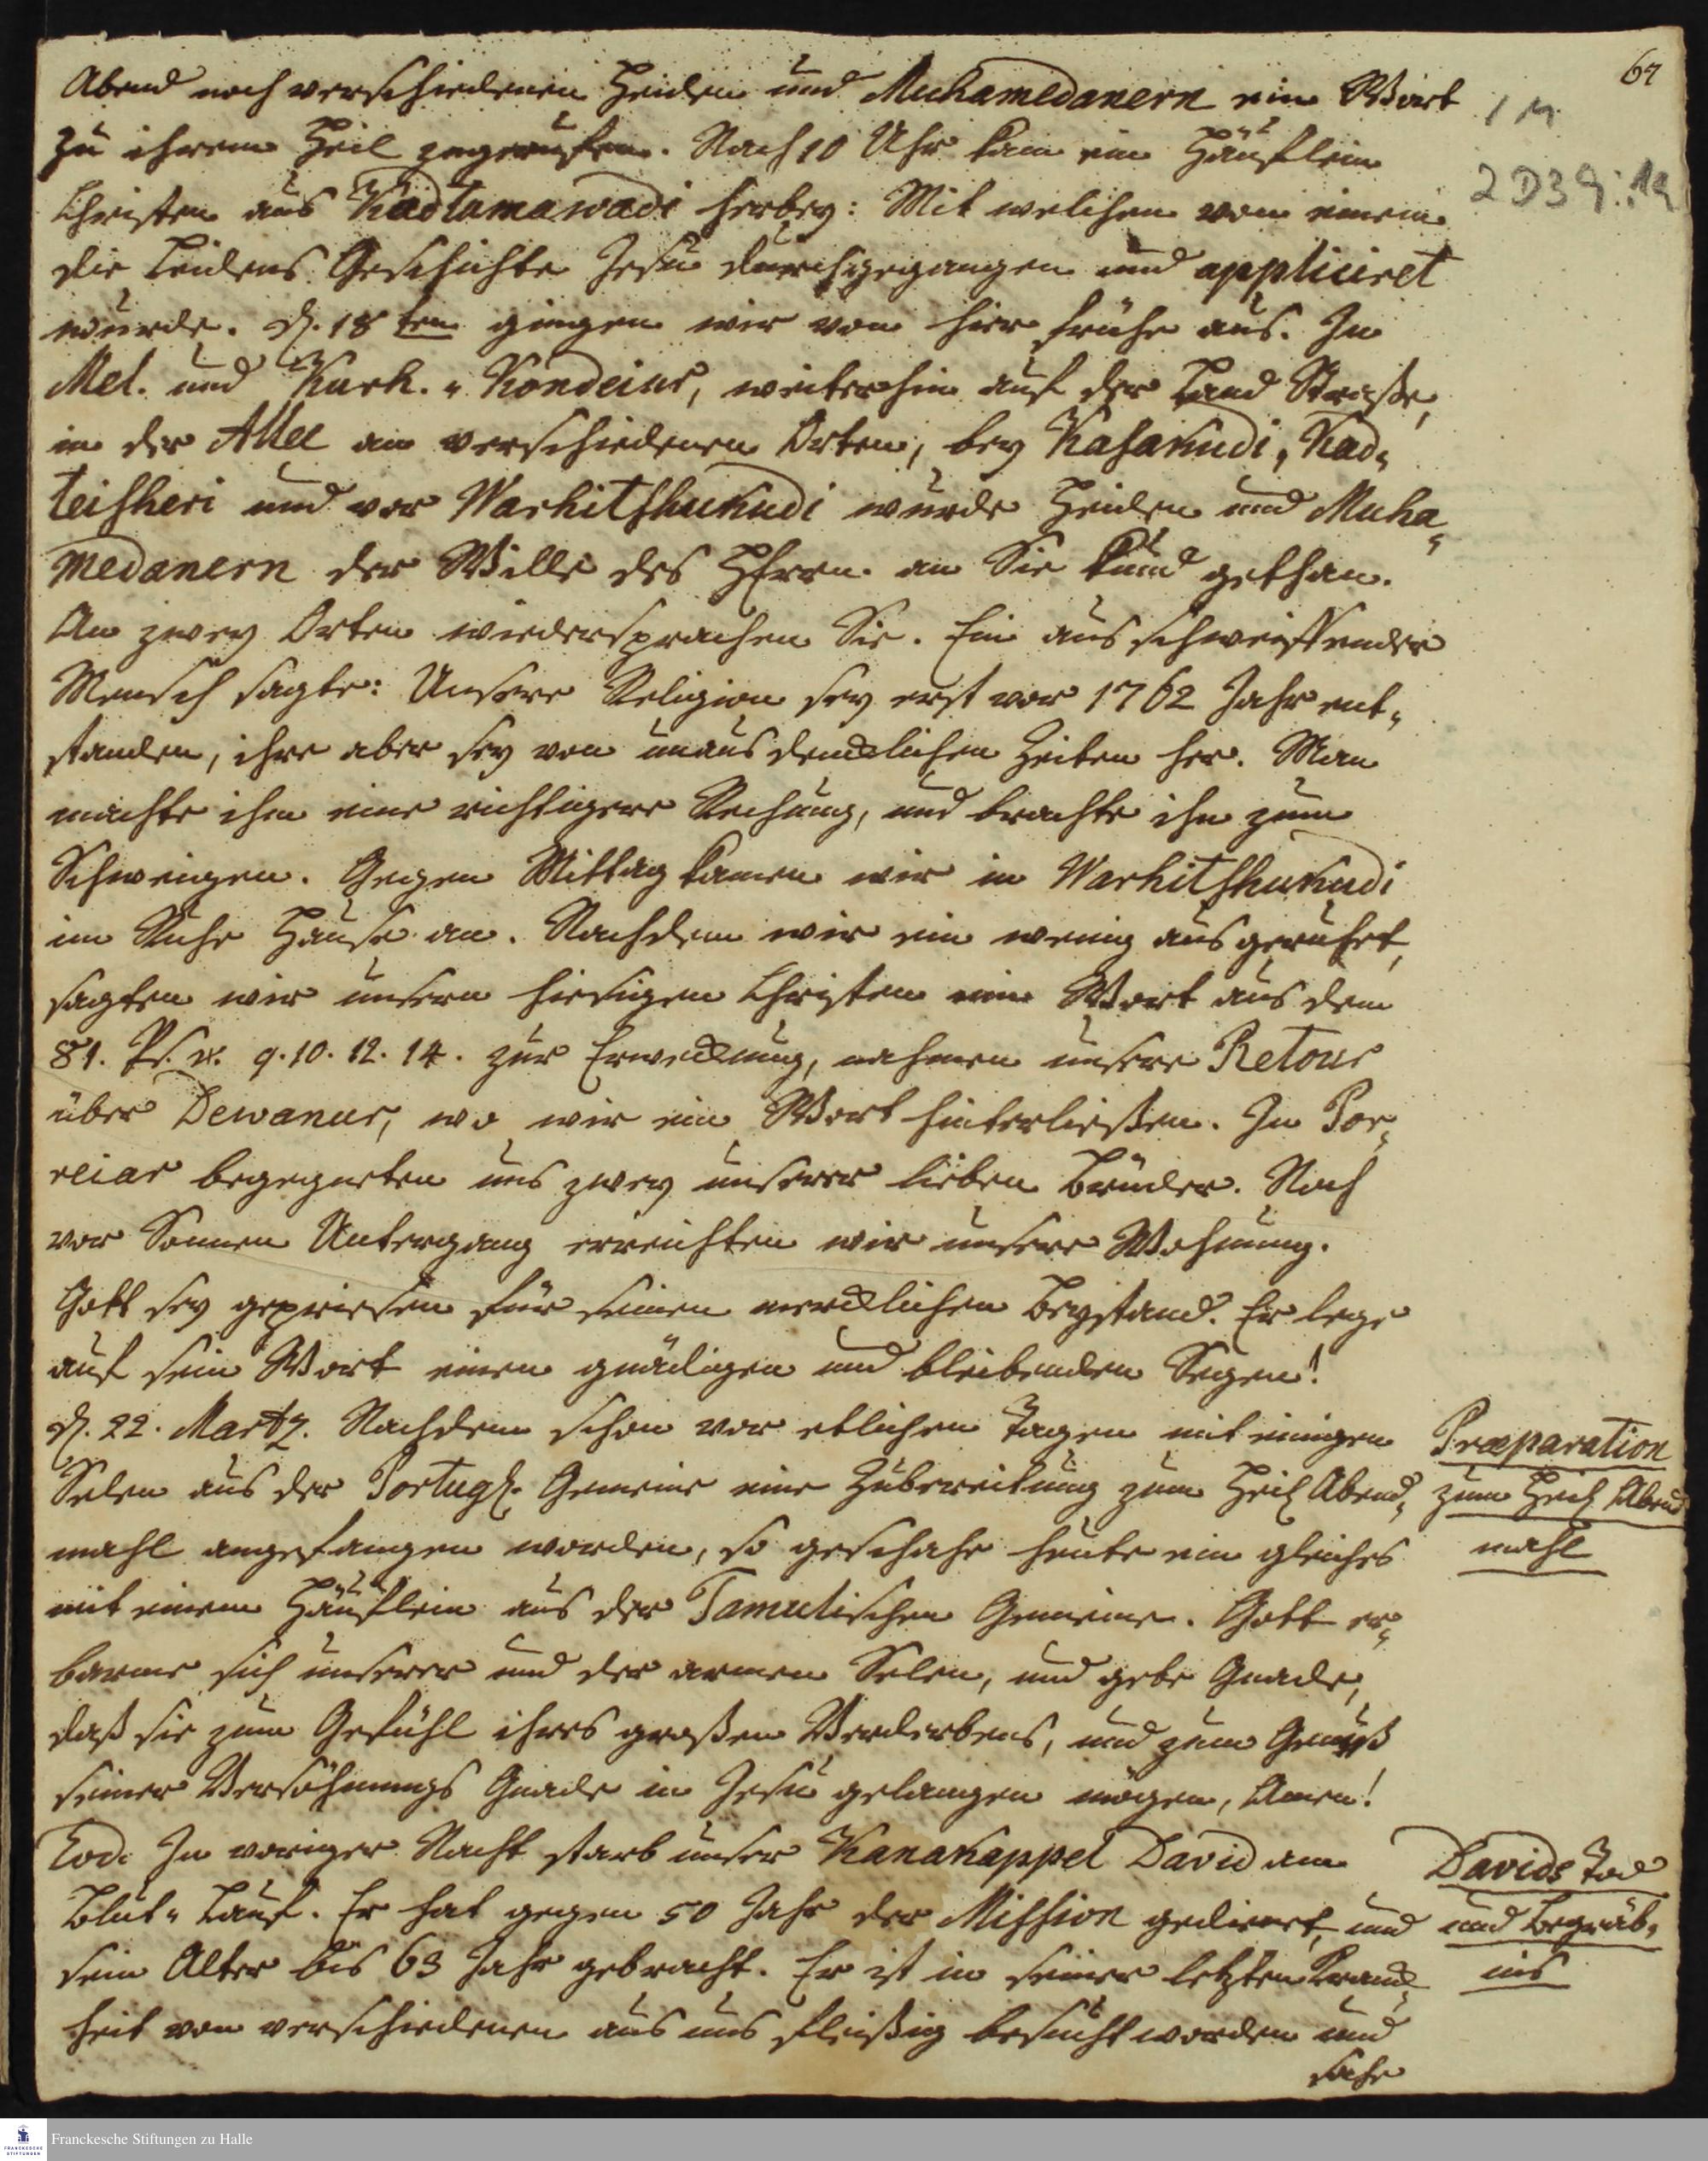 67
1 M
2 D39:1a
Abend noch verschiedenen Heiden und Muhamedanern ein Wort
zu ihrem Heil zugerufen. Nach 10 Uhr kam ein Häuflein
Christen aus Kadtamawadi herbey: Mit welchen von einem
die Leidens Geschichte Jesu durchgegangen und appliciret
wurde. d. 18ten gingen wir von hier frühe aus. In
Mel. und Kurh.-Kondeiur, weiterhin auf der Land Straße,
in der Allee an verschiedenen Orten, bey Kasakudi, Kad-
teisheri und vor Warhitshukudi wurde Heiden und Muha-
medanern der Wille des HErrn an Sie kund gethan.
An zwey Orten wiedersprachen Sie. Ein ausschweiffender
Mensch sagte: Unsere Religion sey erst vor 1762 Jahr ent-
standen, ihre aber sey von unausdencklichen Zeiten her. Man
machte ihm eine richtigere Rechnung, und brachte ihn zum
Schweigen. Gegen Mittag kamen wir in Warhitshukudi
im Ruhe Hause an. Nachdem wir ein wenig ausgeruhet,
sagten wir unsern hiesigen Christen ein Wort aus dem
81. Ps. v. 9.10.12.14. zur Erweckung, nahmen unsere Retour
über Dewanur, wo wir ein Wort hinterließen. In Por-
reiar begegneten uns zwey unserer lieben Brüder. Noch
vor Sonnen Untergang erreichten wir unsere Wohnung.
Gott sey gepriesen für seinen mercklichen Beystand. Er lege
auf sein Wort einen gnädigen und bleibenden Segen!
d. 22. Martz. Nachdem schon vor etlichen Tagen mit einigen
Selen aus der Portugs. Gemeine eine Zubereitung zum Heil. Abend-
mahl angefangen worden, so geschahe heute ein gleiches
mit einem Häuflein aus der Tamulischen Gemeine. Gott er-
barme sich unserer und der armen Selen, und gebe Gnade,
daß sie zum Gefühl ihres großen Verderbens, und zum Genuß
seiner Versöhnungs Gnade in Jesu gelangen mögen, Amen!
Præparation
zum Heil. Abend
mahl
Eod. In voriger Nacht starb unser Kanakappel David am
Blut-Lauf. Er hat gegen 50 Jahr der Mission gedienet, und
sein Alter bis 63 Jahr gebracht. Er ist in seiner letzten Kranck-
heit von verschiedenen aus uns fleißig besucht worden und
sahe
Davids Tod
und Begräb-
nis
Franckesche Stiftungen zu Halle